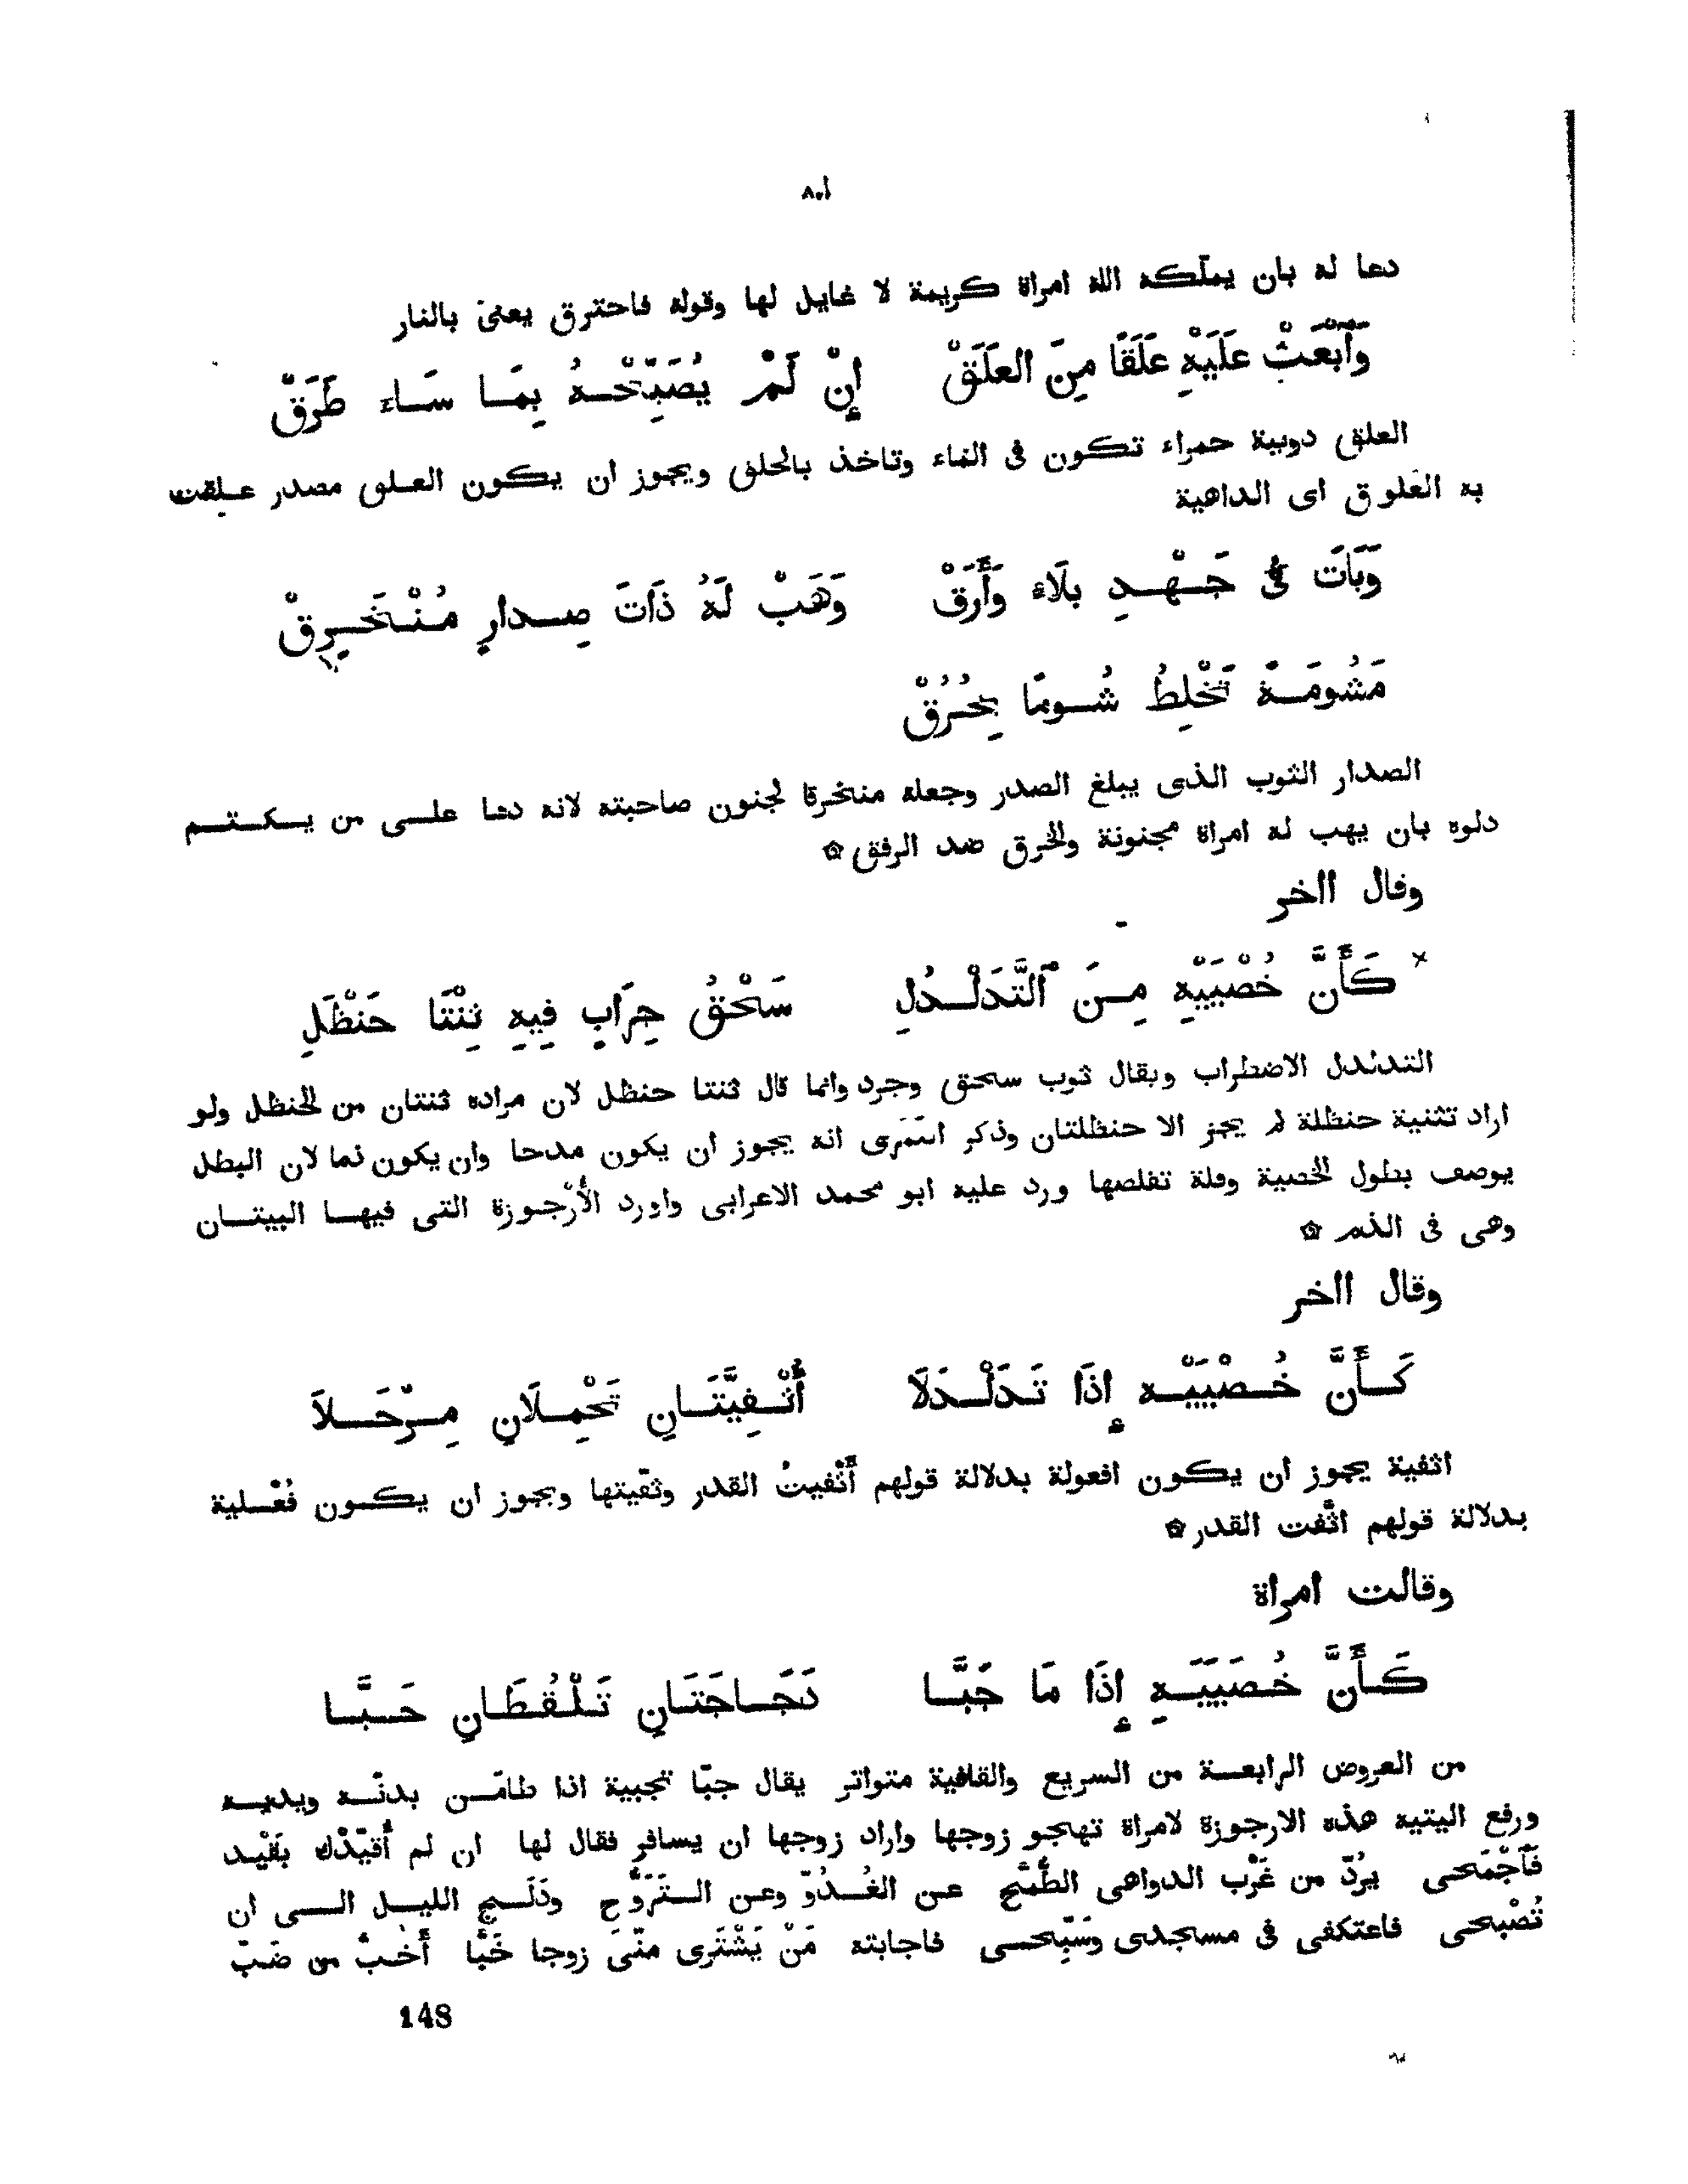 ٨٠١
دعا له بان يملّكه الله امراة كريمة لا غايل لها وقوله فاحترق يعنى بالنار
وَٱبْعَثْ عَلَيْهِ عَلَقًا مِنَ العَلَقْ إِنْ لَمْ يُصَبِّحْهُ بِمَا سَاء طَرَقْ
العلق دويبة حمراء تكون فى الماء وتاخذ بالحلق ويجوز ان يكون العلق مصدر علِقت
به العَلوق اى الداهية
وَبَاتَ فِى جَهْدِ بلَاء وَأَرَقْ وَهَبْ لَهُ ذَاتَ صِدارٍ مُنْخَرِقْ
مَشُومَةً تَخْلِطُ شُومًا بِخُرُقْ
الصدار الثوب الذى يبلغ الصدر وجعله منخرقا لجنون صاحبته لانه دعا على من يكتم
دلوه بان يهب له امراة مجنونة والخرق ضد الرفق ۞
وقال ااخر
كَأَنَّ خُصْيَيْهِ مِنَ ٱلتَّدَلْدُلِ سَحْقُ جِرَابٍ فِيهِ ثِنْتَا حَنْظَلِ
التدلدل الاضطراب ويقال ثوب سحق وجرد وانما قال ثنتا حنظل لان مراده ثنتان من الحنظل ولو
اراد تثنية حنظلة لم يجز الا حنظلتان وذكر النمَرى انه يجوز ان يكون مدحا وان يكون ذما لان البطل
يوصف بطول الخصية وقلة تقلصها ورد عليه ابو محمد الاعرابى واورد الأُرْجوزة التى فيها البيتان
وهى فى الذم ۞
وقال ااخر
كَأَنَّ خُصْيَيْهِ إِذَا تَدَلْدَلَا أُثْفِيَّتَانِ تَحْمِلَانِ مِرْجَلَا
اثفية يجوز ان يكون افعولة بدلالة قولهم أَثْفيتُ القدر وثفّيتها ويجوز ان يكون فُعْلية
بدلالة قولهم اثّفت القدر ۞
وقالت امراة
كَأَنَّ خُصَيَيْهِ إِذَا مَا جَبَّا دَجَاجَتَانِ تَلْقُطَانِ حَبَّا
من العروض الرابعة من السريع والقافية متواتر يقال جبّا تجبية اذا طامَن بدنَه ويديه
ورفع اليتيه هذه الارجوزة لامراة تهجو زوجها واراد زوجها ان يسافر فقال لها ان لم أُقيّدْك بقَيْد
فَٱجْمَحى يرُدّ من غَرْب الدواهى الطُمَّح عن الغُدُوّ وعن التَرَوُّح ودَلَج الليل الى ان
تُصْبحى فاعتكفى فى مسجدى وسَبّحى فاجابته مَنْ يَشْتَرى منّىَ زوجا خَبًّا أَخَبَّ من ضَبّ
148